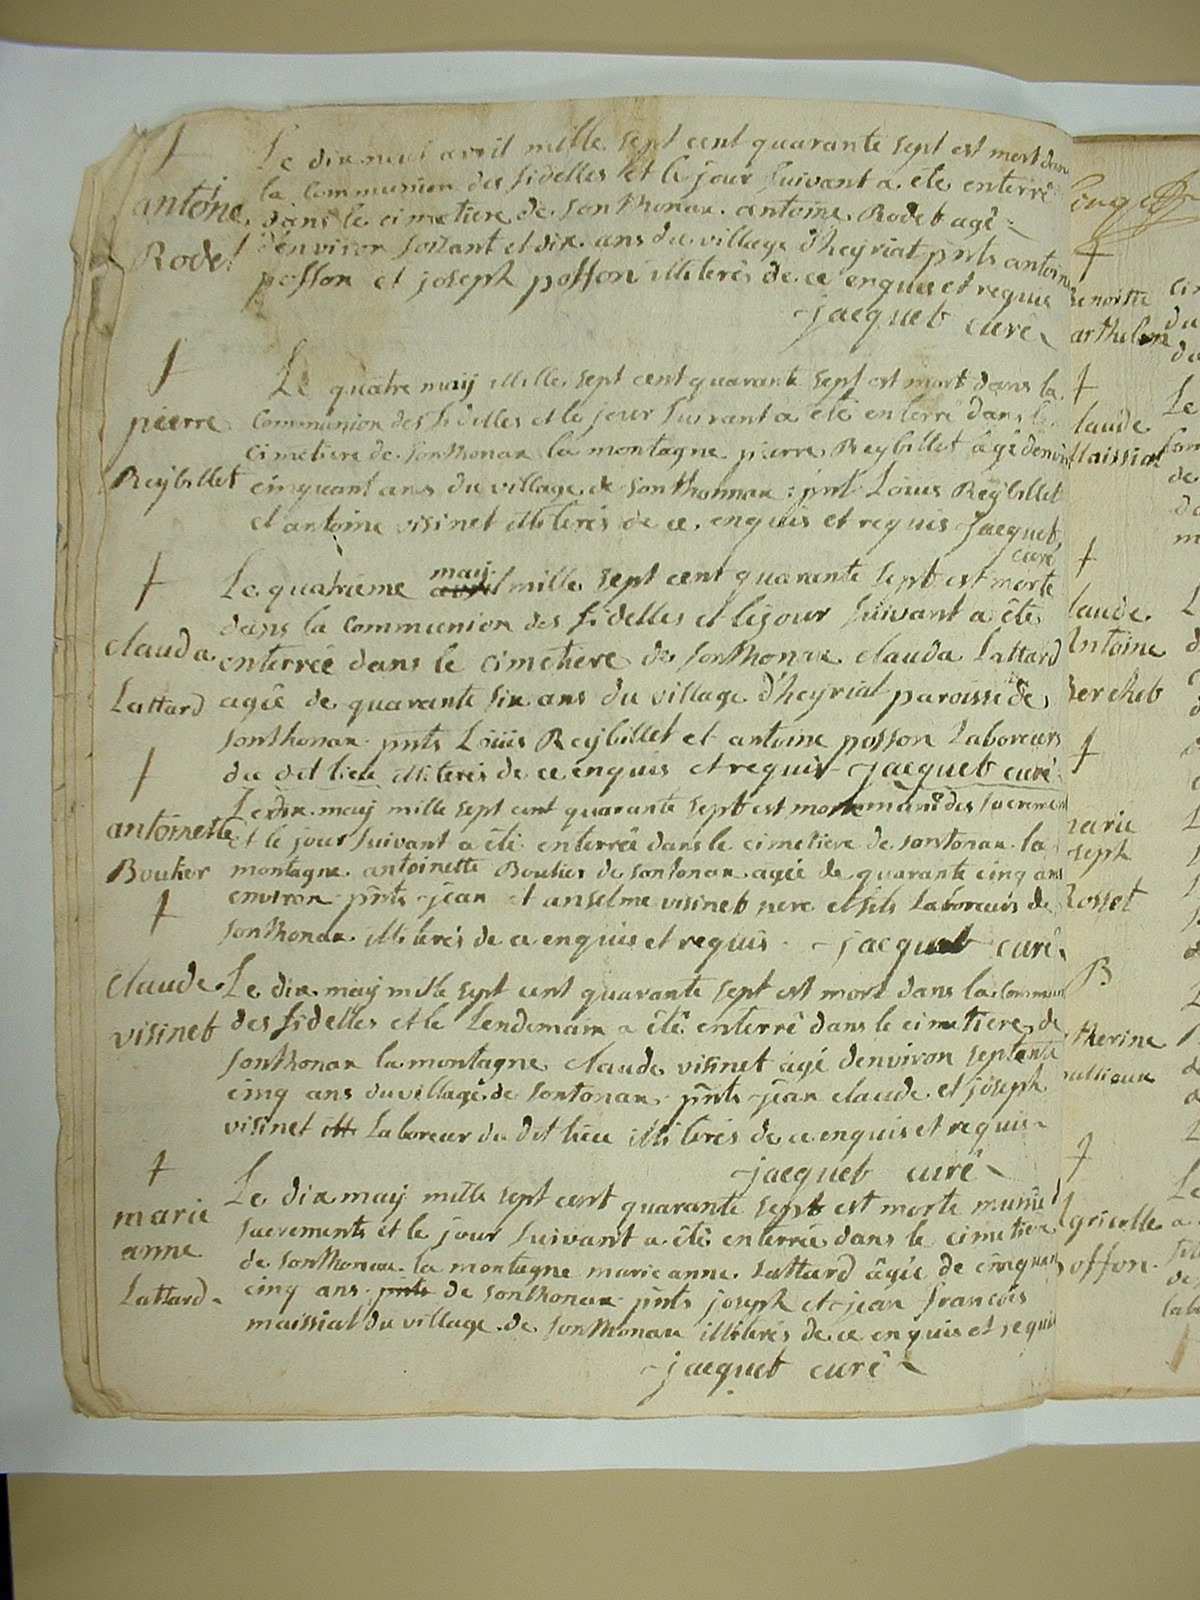 Le dix neuf avril mille sept cent quarante sept est mort dans
la Communion des fidelles et le jour suivant a ete enterré
antoine
dans le cimetiere de Sonthonax antoine Rodet agé
Rodet
d'environ soixant et dix ans du village d'heyriat pnts antoine
posson et joseph posson illiterés de ce enquis et requis
jacquet curé
Le quatre maij mille sept cent quarante sept est mort dans la
pierre
Communion des fidelles et le jour suivant a été enterré dans le
cimetiere de Sonthonax la montagne pierre Reybillet âgé denviron
Reybillet
cinquant ans du village de Sonthonnax : pnt Louis Reybillet
et antoine visinet illiterés de ce enquis et requis Jacquet
curé
Le quatrieme maij mille sept cent quarante sept est morte
dans la Communion des fidelles et le jour suivant a été
clauda
enterrée dans le cimetiere de Sonthonax clauda Lattard
Lattard
agée de quarante six ans du village d'heyriat paroisse de
Sonthonax pnts Loüis Reijbillet et antoine posson Laboreurs
du dit lieu illiterés de ce enquis et requis jacquet curé
Le dix maij mille sept cent quarante sept est morte munie des sacrements
antoinette
et le jour suivant a été enterrée dans le cimetiere de Sontonax la
Boulier
montagne antoinette Boulier de Sontonax agée de quarante cinq ans
environ pnts jean et anselme visinet pere et fils Laboreurs de
Sonthonax illiterés de ce enquis et requis jacquet curé
claude
Le dix maij mille sept cent quarante sept est mort dans la Commun
visinet
des fidelles et le Lendemain a été enterré dans le cimetiere de
Sonthonax la montagne claude visinet agé denviron septante
cinq ans du village de Sontonax pnts jean claude et joseph
visinet Laboreur du dit lieu illiterés de ce enquis et requis
jacquet curé
Le dix maij mille sept cent quarante sept est morte munie d
marie
sacrements et le jour suivant a été enterrée dans le cimetiere
anne
de Sonthonax la montagne marie anne Lattard âgée de cinquant
Lattard
cinq ans pnts de Sonthonax pnts joseph et jean francois
maissiat du village de Sonthonax illiterés de ce enquis et requis
jacquet curé